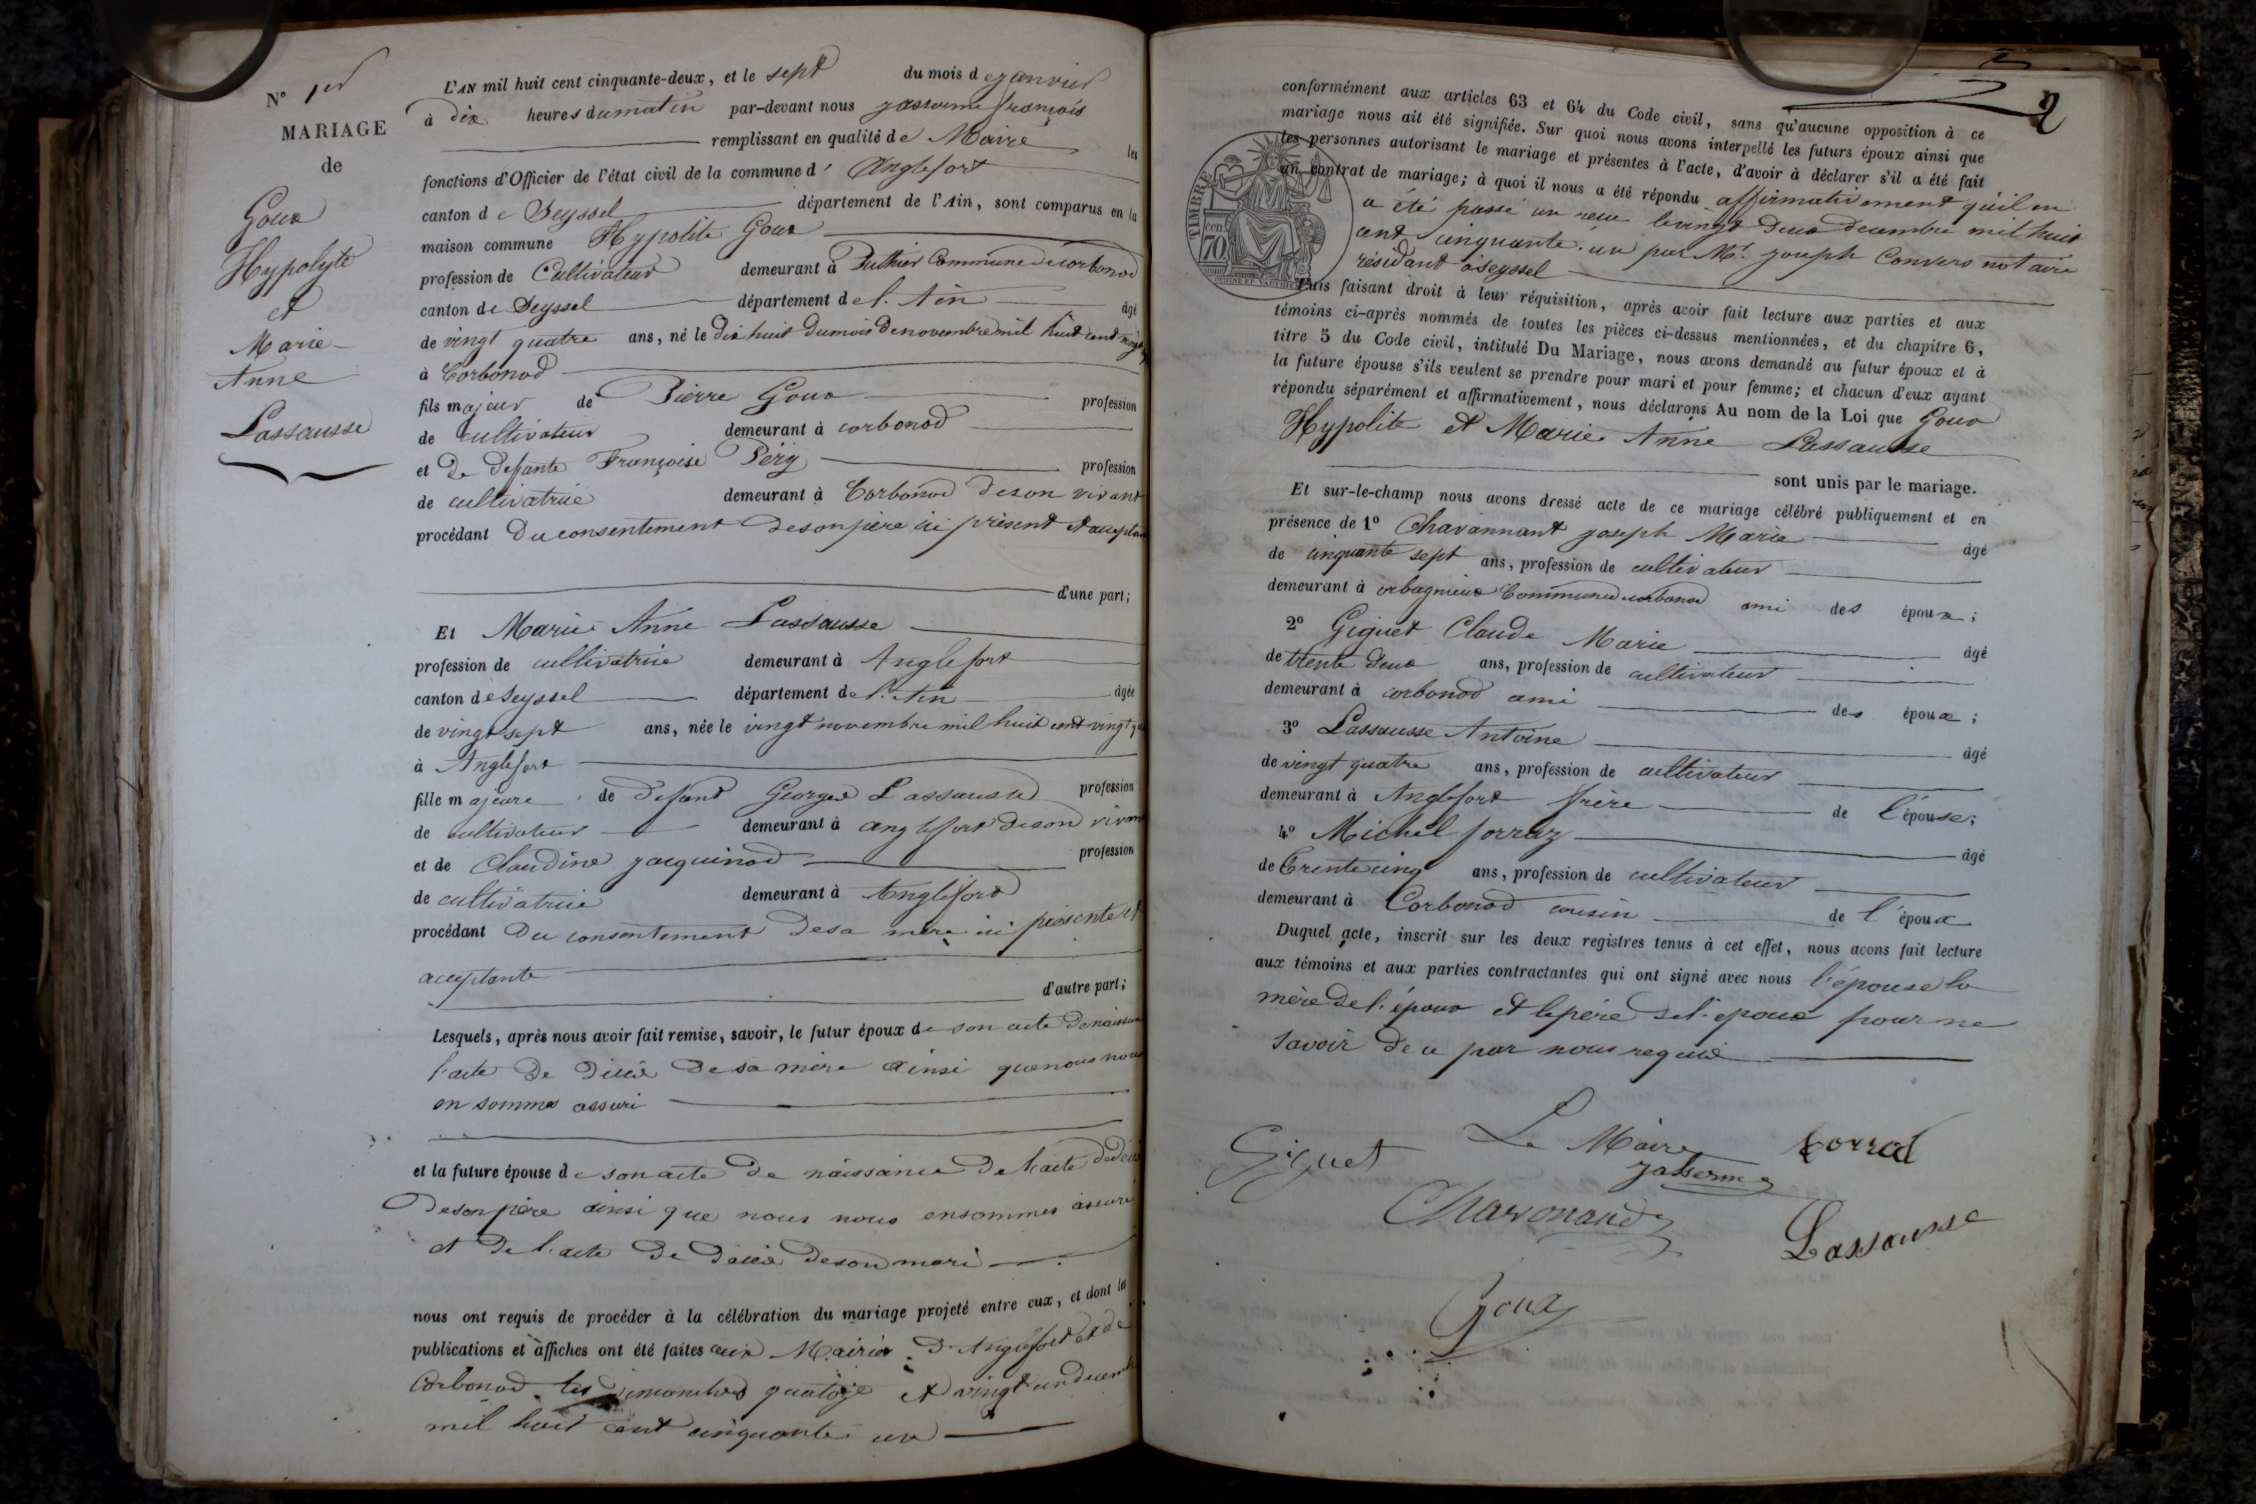 N° 1er
MARIAGE
de
Goux
Hypolyte
et
Marie
Anne
Lassausse
L'AN mil huit cent cinquante-deux, et le sept du mois de janvier
à dix heures du matin par-devant nous Jasserme françois
remplissant en qualité de Maire les
fonctions d'Officier de l'état civil de la commune d' Anglefort
canton de Seyssel département de l'Ain, sont comparus en la
maison commune Hypolite Goux
profession de Cultivateur demeurant à Puthier Commune de corbonod
canton de Seyssel département de l'Ain âgé
de vingt quatre ans, né le dix huit du mois de novembre mil huit cent vingt
à Corbonod
fils majeur de Pierre Goux profession
de cultivateur demeurant à corbonod
et de defante Françoise Péry profession
de cultivatrice demeurant à Corbonod de son vivant
procédant du consentement de son père ici présent et acceptan
d'une part;
Et Marie Anne Lassausse
profession de cultivatrice demeurant à Anglefort
canton de Seyssel département de l'Ain âgée
de vingt sept ans, née le vingt novembre mil huit cent vingt
à Anglefort
fille majeure de defant George Lassausse profession
de cultivateur demeurant à anglefort de son vivant
et de Claudine jacquinod profession
de cultivatrice demeurant à Anglefort
procédant du consentement de sa mère ici présente et
acceptante
d'autre part;
Lesquels, après nous avoir fait remise, savoir, le futur époux de son acte de naissance
l'acte de décès de sa mère ainsi que nous nous
en sommes assuré
et la future épouse de son acte de naissance de l'acte de décès
de son père ainsi que nous nous en sommes assuré
et de l'acte de décès de son mari
nous ont requis de procéder à la célébration du mariage projeté entre eux, et dont les
publications et affiches ont été faites aux Mairies d'Anglefort et de
Corbonod les dimanches quatoze et vingt un decemb
mil huit cent cinquante un
2
conformément aux articles 63 et 64 du Code civil, sans qu'aucune opposition à ce
mariage nous ait été signifiée. Sur quoi nous avons interpellé les futurs époux ainsi que
les personnes autorisant le mariage et présentes à l'acte, d'avoir à déclarer s'il a été fait
un contrat de mariage; à quoi il nous a été répondu affirmativement qu'il en
a été passé un reçu le vingt deux decembre mil huit
cent cinquante un par Me joseph Convers notaire
résidant à Seyssel
TIMBRE
70 cen
Puis faisant droit à leur réquisition, après avoir fait lecture aux parties et aux
témoins ci-après nommés de toutes les pièces ci-dessus mentionnées, et du chapitre 6,
titre 5 du Code civil, intitulé Du Mariage, nous avons demandé au futur époux et à
la future épouse s'ils veulent se prendre pour mari et pour femme; et chacun d'eux ayant
répondu séparément et affirmativement, nous déclarons Au nom de la Loi que Goux
Hypolite et Marie Anne Lassausse
sont unis par le mariage.
Et sur-le-champ nous avons dressé acte de ce mariage célébré publiquement et en
présence de 1° Chavannant joseph Marie âgé
de cinquante sept ans, profession de cultivateur
demeurant à orbagnieux Commune de corbonod ami des époux;
2° Giguet Claude Marie âgé
de trente deux ans, profession de cultivateur
demeurant à corbonod ami des époux;
3° Lassausse Antoine âgé
de vingt quatre ans, profession de cultivateur
demeurant à Anglefort frère de l'épouse;
4° Michel forraz âgé
de trente cinq ans, profession de cultivateur
demeurant à Corbonod cousin de l'époux
Duquel acte, inscrit sur les deux registres tenus à cet effet, nous avons fait lecture
aux témoins et aux parties contractantes qui ont signé avec nous l'épouse la
mère de l'époux et le père de l'époux pour ne
savoir de ce par nous requis
Giguet
Le Maire
Jasserme
forraz
Chavonand
Lassausse
Goux